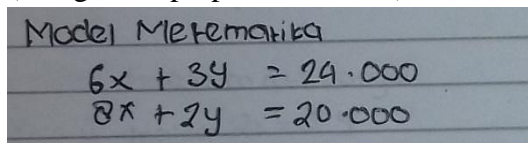 Model Metematika
6x + 3y = 24.000
8x + 2y = 20.000